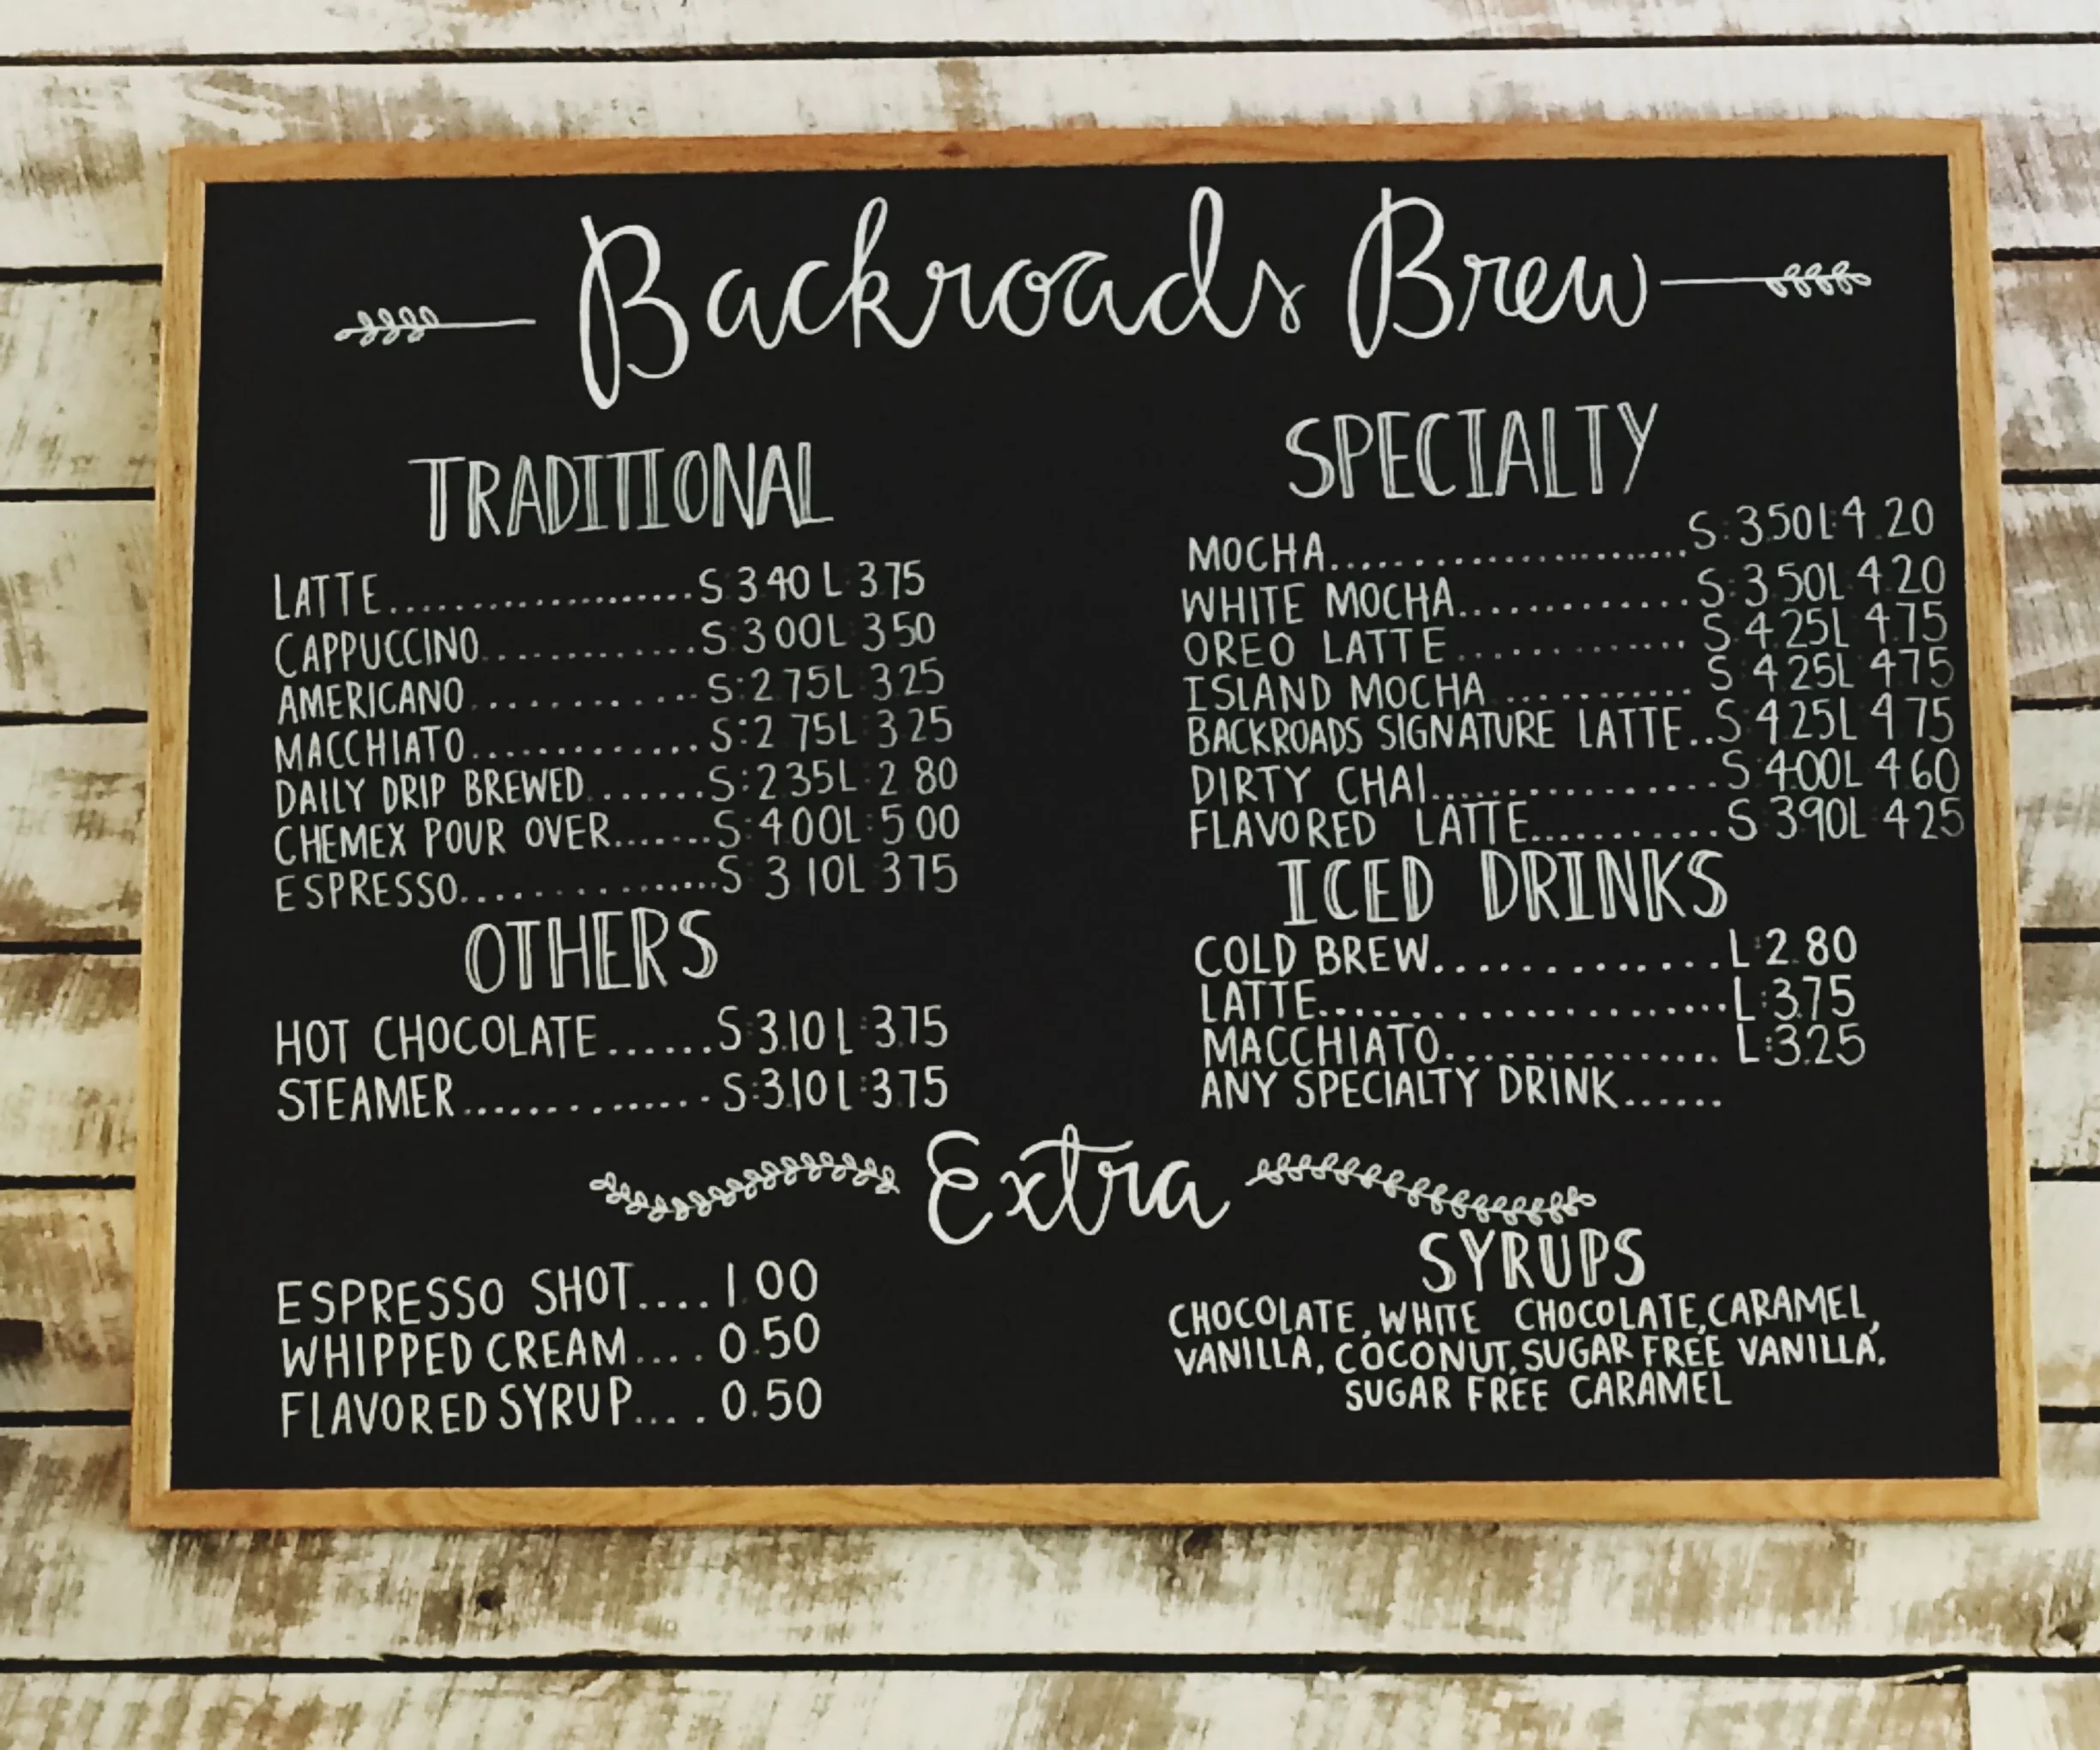 Backroads Brew
TRADITIONAL
LATTE....................S:3.40 L:3.75
CAPPUCCINO.............S:3.00 L:3.50
AMERICANO............S:2.75 L:3.25
MACCHIATO.............S:2.75 L:3.25
DAILY DRIP BREWED.......S:2.35 L:2.80
CHEMEX POUR OVER.......S:4.00 L:5.00
ESPRESSO................S:3.10 L:3.75
OTHERS
HOT CHOCOLATE......S:3.10 L:3.75
STEAMER..............S:3.10 L:3.75
SPECIALTY
MOCHA......................S:3.50 L:4.20
WHITE MOCHA.............S:3.50 L:4.20
OREO LATTE.............S:4.25 L:4.75
ISLAND MOCHA............S:4.25 L:4.75
BACKROADS SIGNATURE LATTE..S:4.25 L:4.75
DIRTY CHAI.................S:4.00 L:4.60
FLAVORED LATTE...........S:3.90 L:4.25
ICED DRINKS
COLD BREW.............L:2.80
LATTE......................L:3.75
MACCHIATO................L:3.25
ANY SPECIALTY DRINK......
Extra
ESPRESSO SHOT....1.00
WHIPPED CREAM....0.50
FLAVORED SYRUP....0.50
SYRUPS
CHOCOLATE, WHITE CHOCOLATE, CARAMEL,
VANILLA, COCONUT, SUGAR FREE VANILLA,
SUGAR FREE CARAMEL